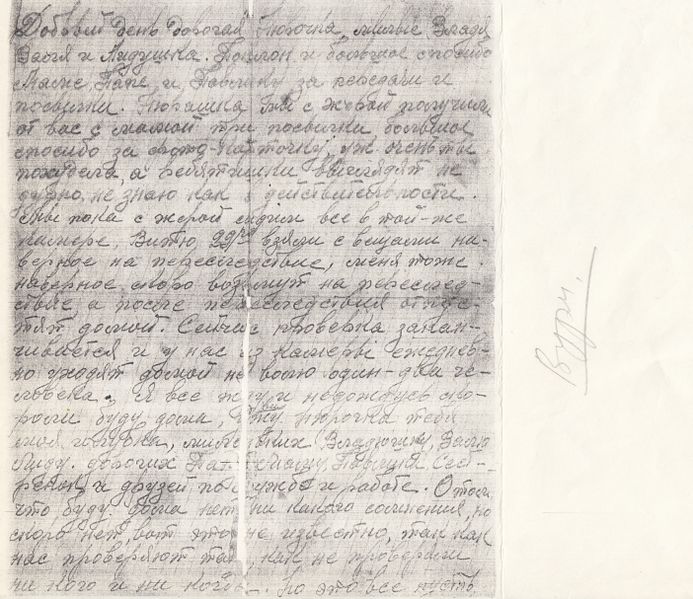 Добрый день дорогая Нюрочка, милые Владя
Валя и Лидушка. Поклон и большое спосибо
Маме, Папе и Павлику за передачи и
посылки. Нюрашка мы с Жорой получили
от вас с мамой три посылки, большое
спосибо за фото-карточку, уж очень ты
похудела, а ребятишки выглядят не
дурно, не знаю как в действительности.
Мы пока с Жорой сидим все в той-же
камере, Витю 29/ взяли с вещами на-
верное на переследствие, меня тоже
наверное скоро возьмут на переслед-
ствие, а после переследствия отпус-
тят домой. Сейчас проверка закан-
чивается и у нас из камеры ежеднев-
но уходят домой на волю один-два че-
ловека. Я все жду и недождусь ско-
ро ли буду дома, Нюрочка тебя
моя голубка, милых Владюшку, Валю
Лиду. дорогих Папу Маму, Павлика Сест-
ренок, и друзей по службе и работе. О том
что буду дома нет ни какого сомнения, но
скоро нет, вот это не известно, так как
нас проверяют так, как не проверяли
ни кого и ни когда. Но это все пусть